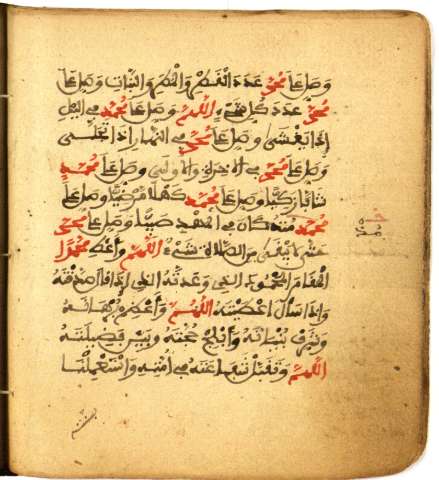 وصل على محمد عدد القطر والمطر والنبات وصل على
محمد عدد كل شيء اللهم وصل على محمد في الليل
إذا يغشى وصل على محمد في النهار إذا تجلى
وصل على محمد في الاخرة والاولى وصل على محمد
شابا زكيا وصل على محمد كهلا مرضيا وصل على
محمد منذ كان في المهد صبيا وصل على محمد
حتى لا يبقى من الصلاة شيء اللهم وأعط محمدا
المقام المحمود الذي وعدته الذي إذا قال صدقته
وإذا سأل أعطيته اللهم وأعظم برهانه
وشرف بنيانه وأبلج حجته وبين فضيلته
اللهم وتقبل شفاعته في أمته واستعملنا
بسنته